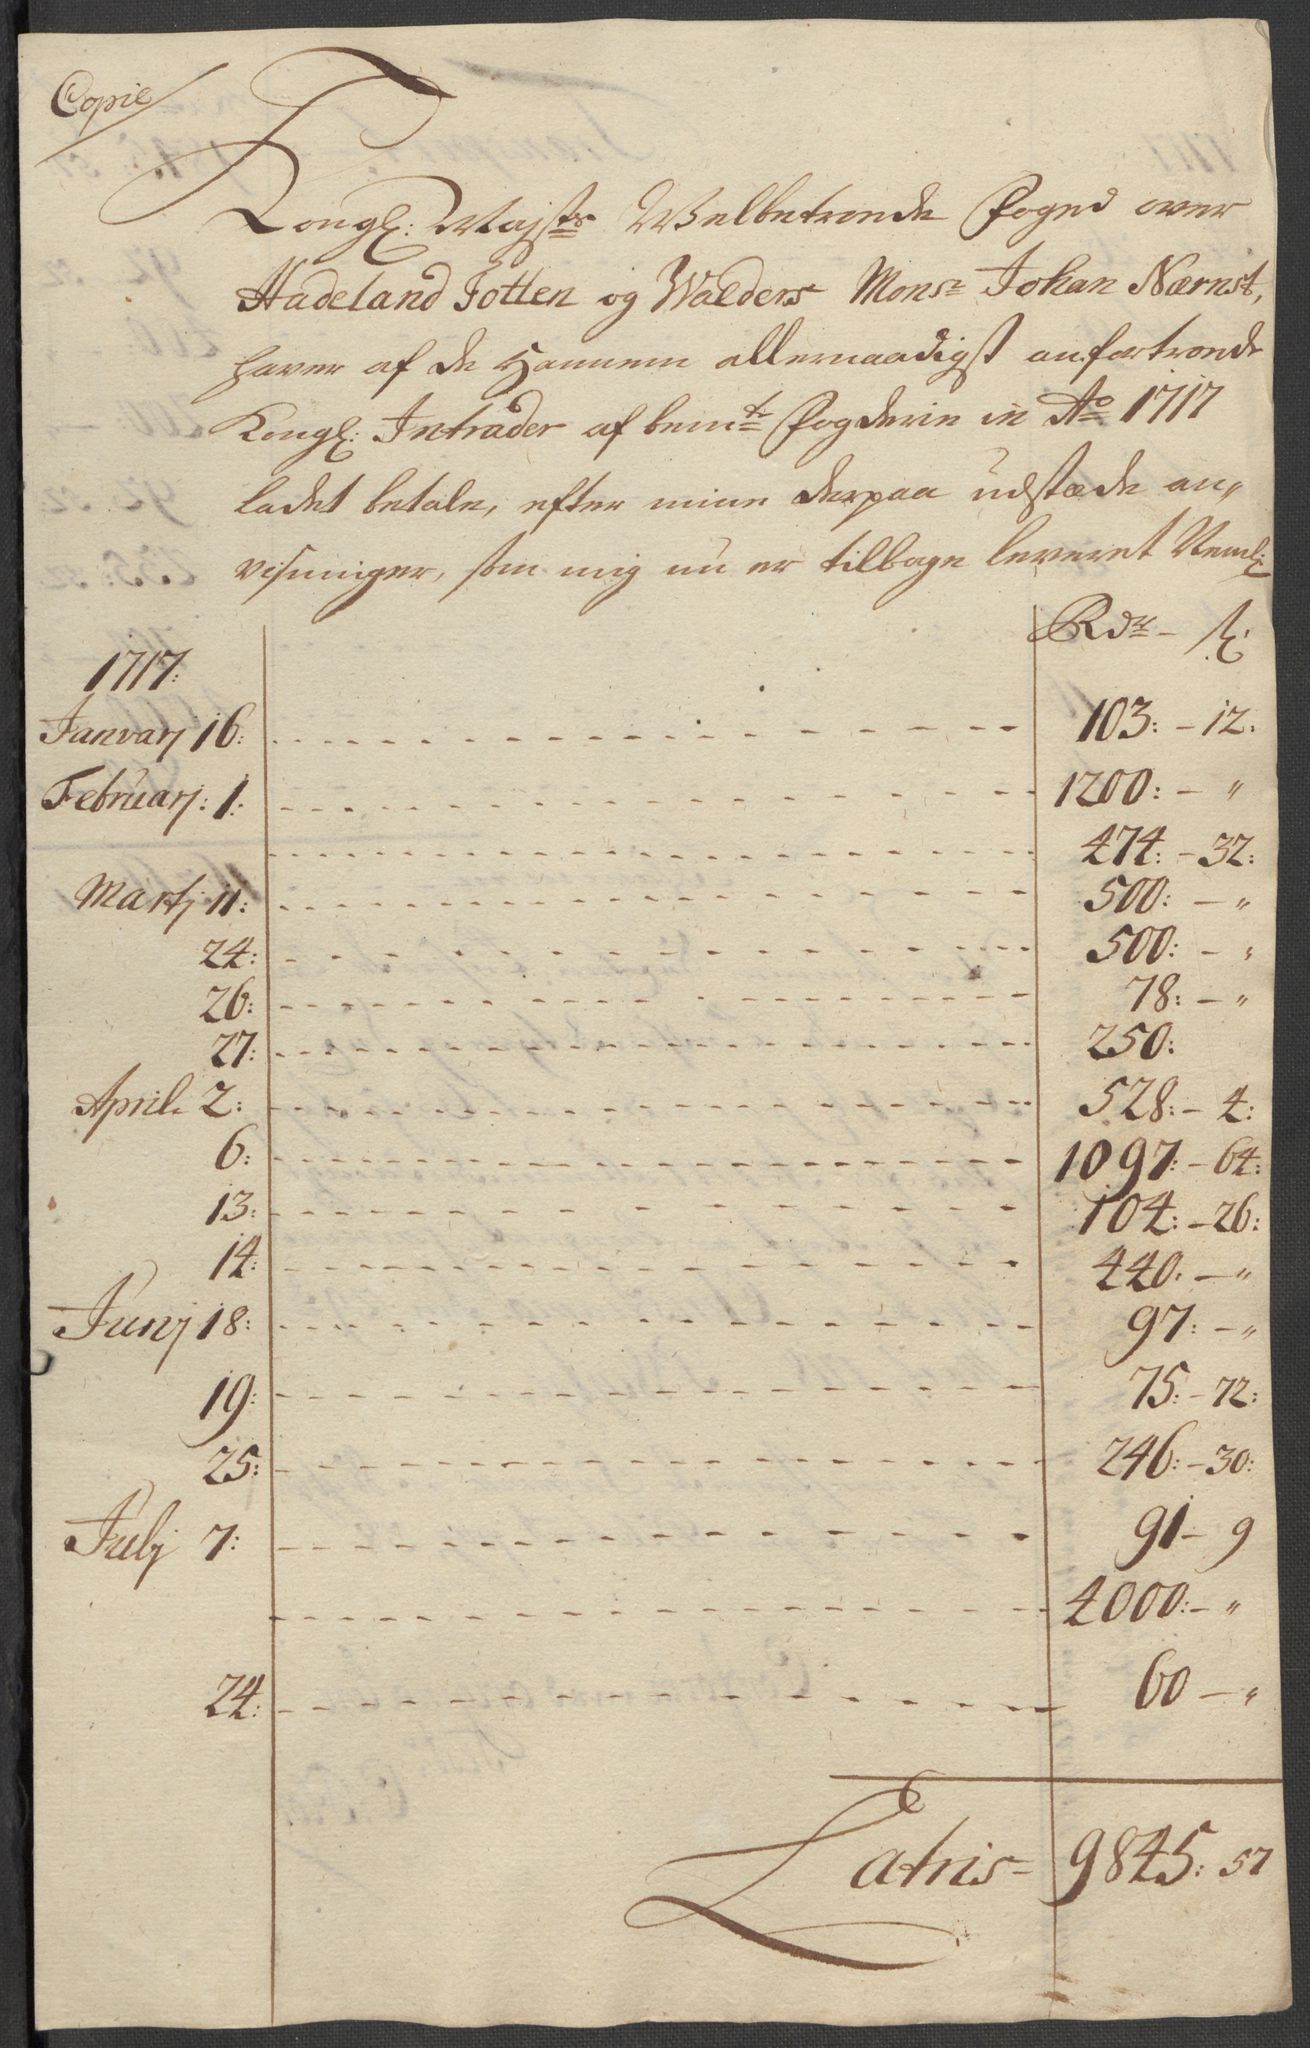 Copie
Kongl: Majsts Welbetronde Foged over
Hadeland Totten og Walders Monsr Johan Nærnst,
haver af de Hannem allernaadigst anfortronde
Kongl: Intrader af bemte Fogderie in Ao 1717
ladet betale, efter mine derpaa udstæde an„
visninger, som mig nu er tilbage leveret Neml:
Rdr – ß:
1717:
Januarj 16: 103: – 12:
Februarj: 1: 1200: – „
474: – 32:
Martj 11: 500: – „
24: 500: – „
26: 78: – „
27: 250:
April 2: 528: – 4:
6: 1097: – 64:
13: 104: – 26:
14: 440. – „
Junj 18: 97: – „
19: 75: – 72:
25: 246: – 30:
Julj 7: 91 – 9
4000: – „
24: 60 – „
Latris = 9845: 57